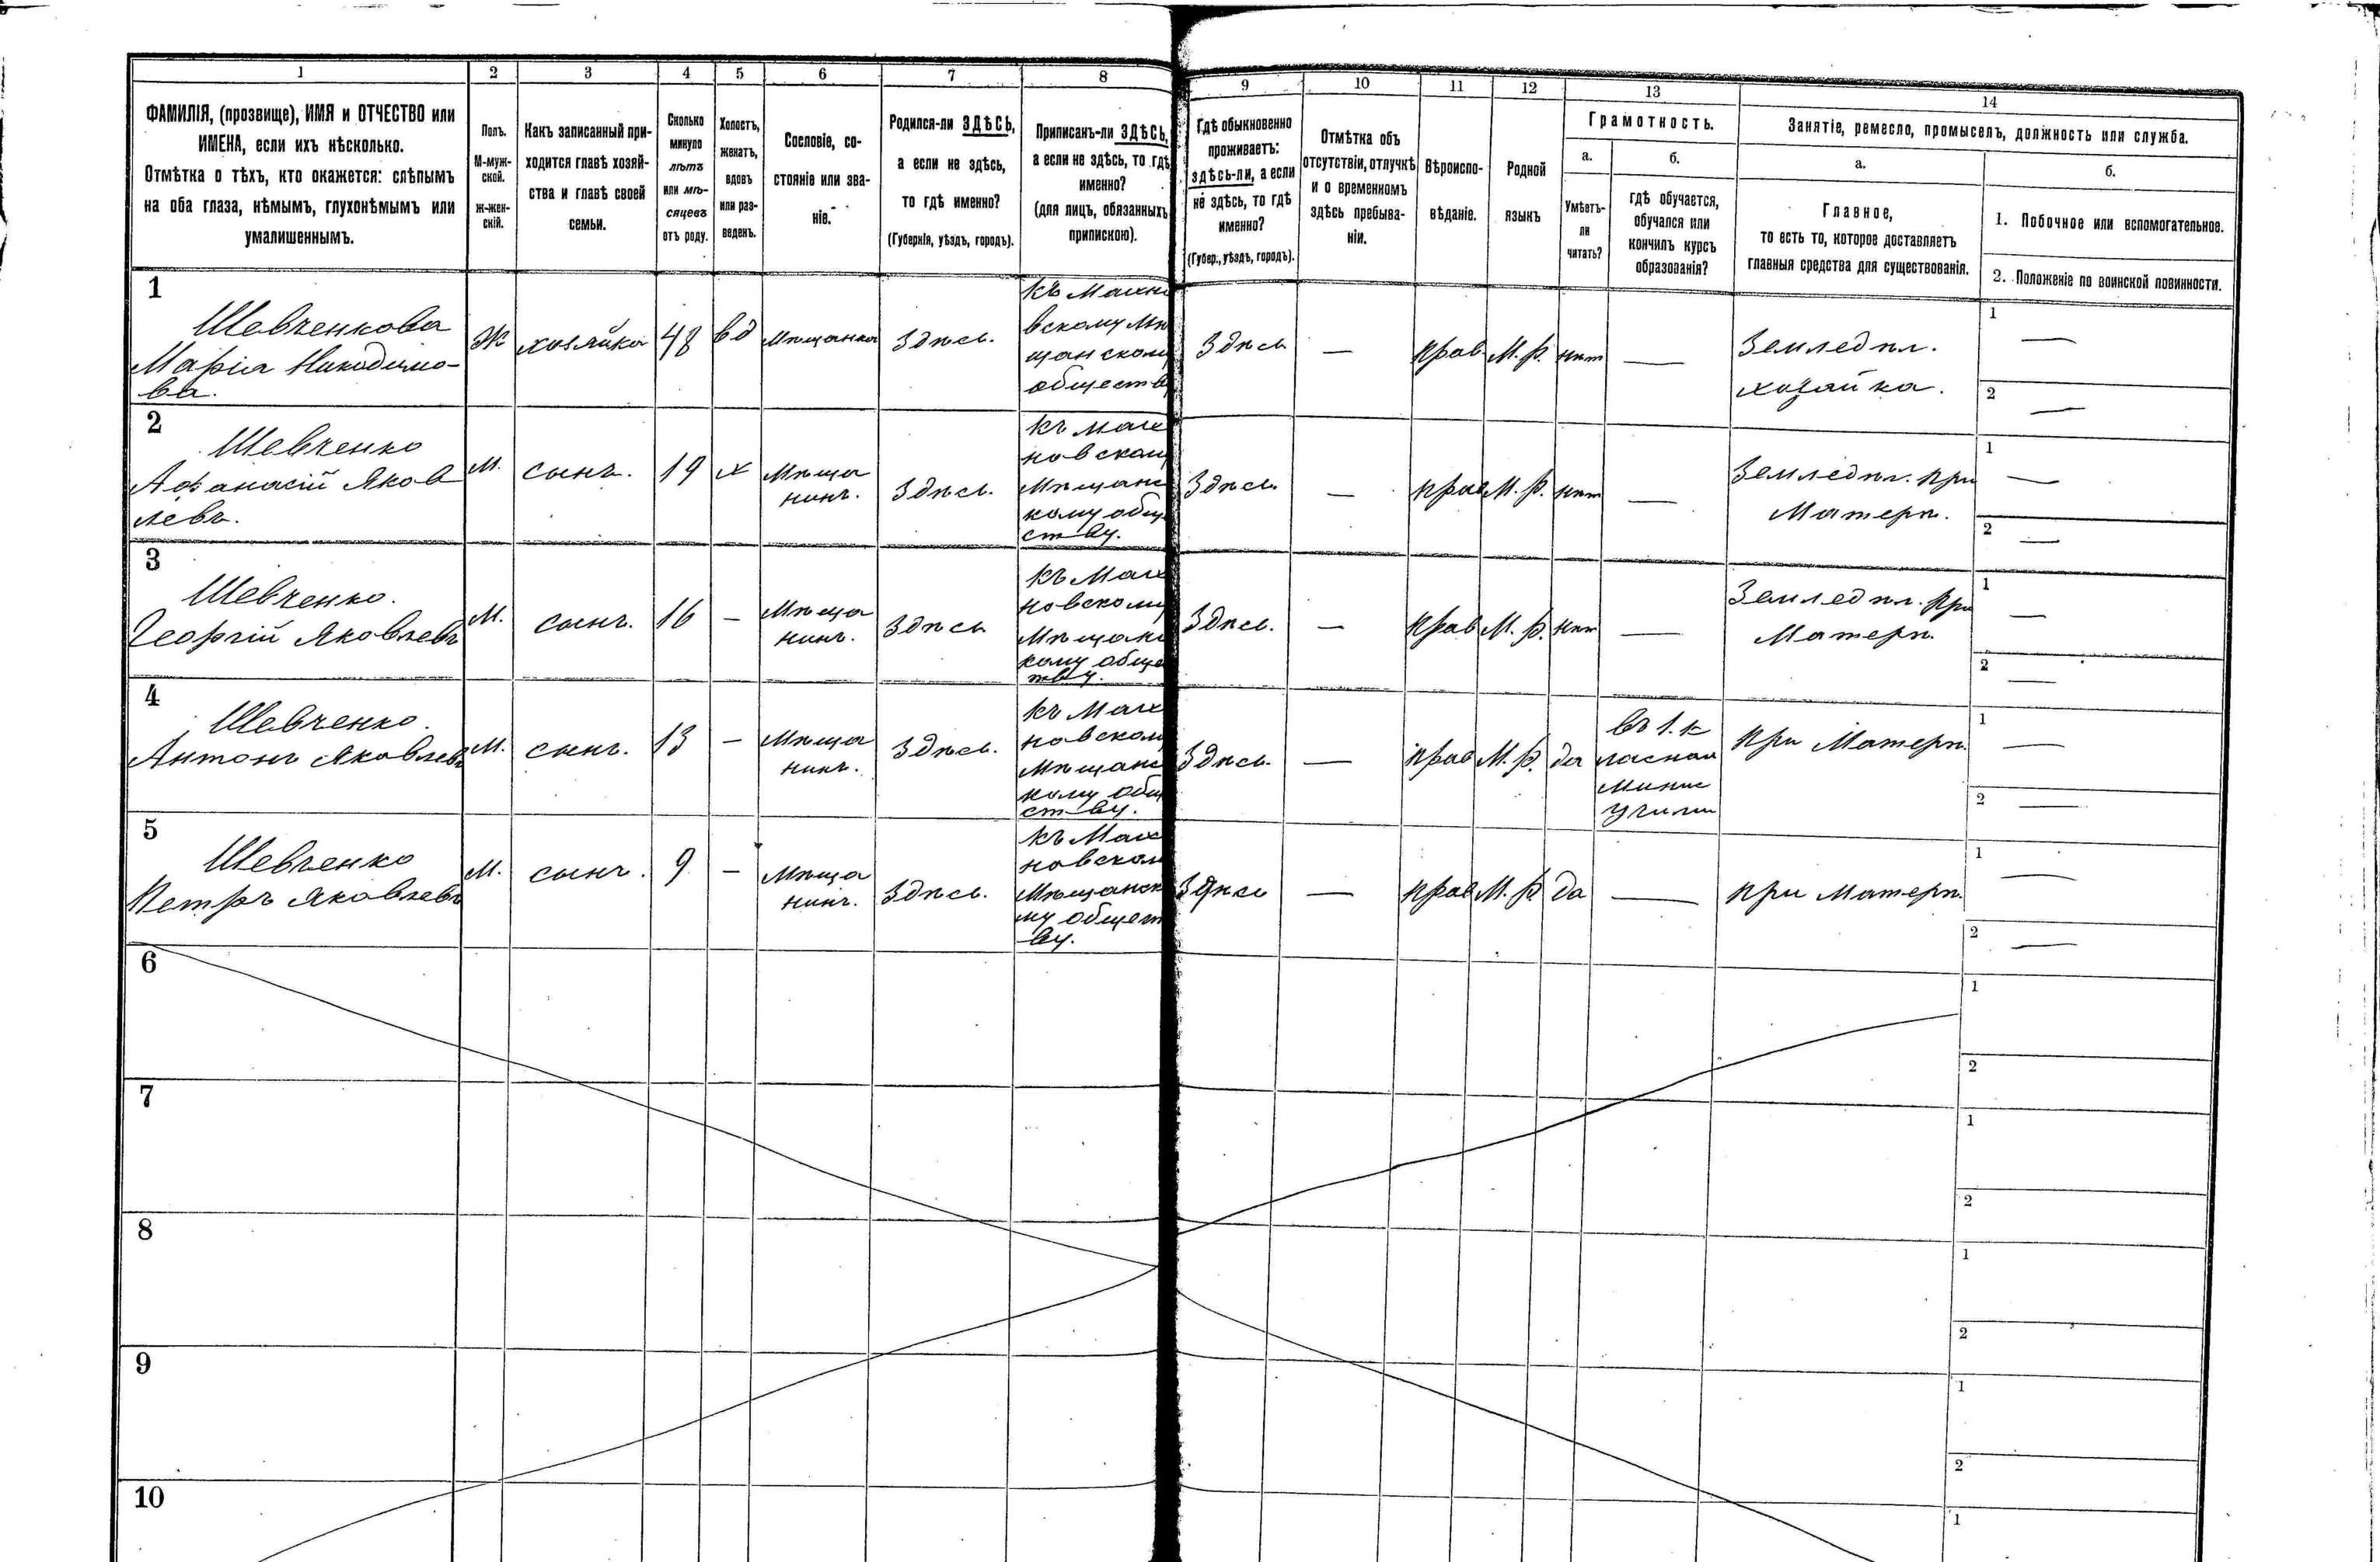 1 2 3 4 5 6 7 8 9 10 11 12 13 14
ФАМИЛІЯ, (прозвище), ИМЯ и ОТЧЕСТВО или
ИМЕНА, если ихъ нѣсколько.
Отмѣтка о тѣхъ, кто окажется: слѣпымъ
на оба глаза, нѣмымъ, глухонѣмымъ или
умалишеннымъ.
Полъ.
М-муж-
ской.
Ж-жен-
скій.
Какъ записанный при-
ходится главѣ хозяй-
ства и главѣ своей
семьи.
Сколько
минуло
лѣтъ
или мѣ-
сяцевъ
отъ роду.
Холостъ,
женатъ,
вдовъ
или раз-
веденъ.
Сословіе, со-
стояніе или зва-
ніе.
Родился-ли ЗДѢСЬ,
а если не здѣсь,
то гдѣ именно?
(Губернія, уѣздъ, городъ).
Приписанъ-ли ЗДѢСЬ,
а если не здѣсь, то гдѣ
именно?
(для лицъ, обязанныхъ
припискою).
Гдѣ обыкновенно
проживаетъ:
здѣсь-ли, а если
не здѣсь, то гдѣ
именно?
(Губер., уѣздъ, городъ).
Отмѣтка объ
отсутствіи, отлучкѣ
и о временномъ
здѣсь пребыва-
ніи.
Вѣроиспо-
вѣданіе.
Родной
языкъ
Грамотность.
а.
Умѣетъ-
ли
читать?
б.
гдѣ обучается,
обучался или
кончилъ курсъ
образованія?
Занятіе, ремесло, промыселъ, должность или служба.
а.
Главное,
то есть то, которое доставляетъ
главныя средства для существованія.
б.
1. Побочное или вспомогательное.
2. Положеніе по воинской повинности.
1
Шевченкова
Марія Никодимо-
ва.
Ж
хозяйка
48
вд
Мѣщанка
Здѣсь.
къ Махно
вскому Мѣ
щанскому
обществу
Здѣсь
—
прав
М. р.
нѣт
—
Земледѣл.
хозяйка.
1
—
2
—
2
Шевченко
Афанасій Яков
левъ.
М.
сынъ.
19
х
Мѣща
нинъ.
Здѣсь.
къ Мах
новскому
Мѣщанс
кому обще
ству.
Здѣсь.
—
прав
М. р.
нѣт
—
Земледѣл. при
Матери.
1
—
2
—
3
Шевченко.
Георгій Яковлевъ
М.
сынъ.
16
—
Мѣща
нинъ.
Здѣсь
къ Мах
новскому
Мѣщанс
кому общес
тву.
Здѣсь.
—
прав
М. р.
нѣт
—
Земледѣл. при
Матери.
1
—
2
—
4
Шевченко.
Антонъ Яковлевъ
М.
сынъ.
13
—
Мѣща
нинъ.
Здѣсь.
къ Мах
новском
Мѣщанс
кому обще
ству.
Здѣсь.
—
прав
М. р.
да
въ 1. к
ласном
Минис
Учили
при Матери.
1
—
2
—
5
Шевченко
Петръ Яковлевъ
М.
сынъ.
9
—
Мѣща
нинъ.
Здѣсь.
къ Мах
новском
Мѣщанск
му общест
ву.
Здѣсь
—
прав
М. р.
да
—
при Матери.
1
—
2
—
6
1
2
7
1
2
8
1
2
9
1
2
10
1